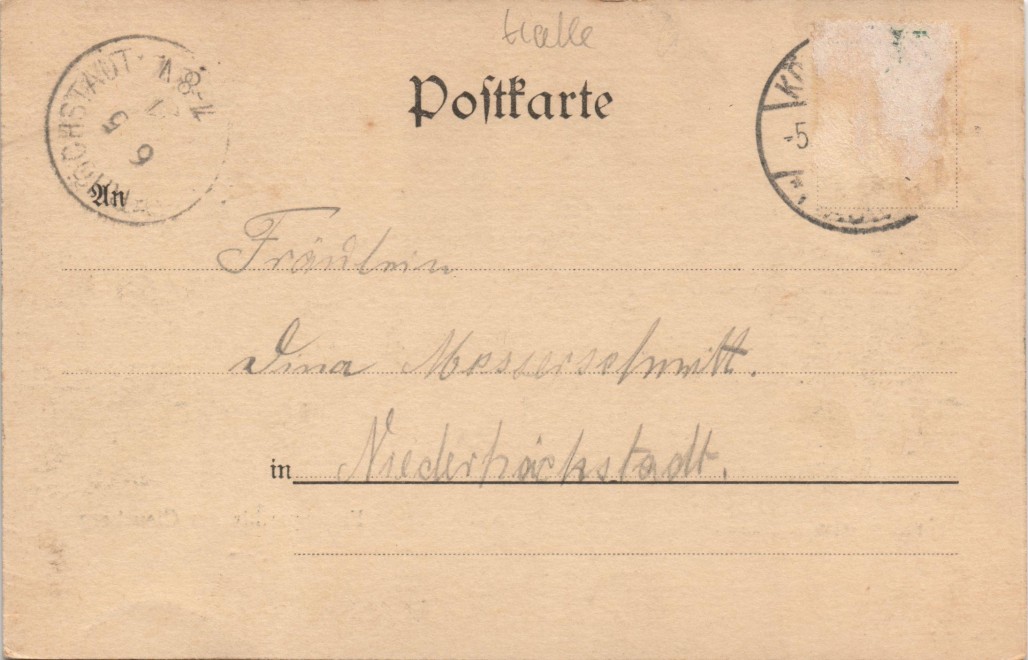 Halle
Postkarte
HÖCHSTADT
5
9
-5
An
Fräulein
Dina Messerschmitt.
in Niederhöchstadt.